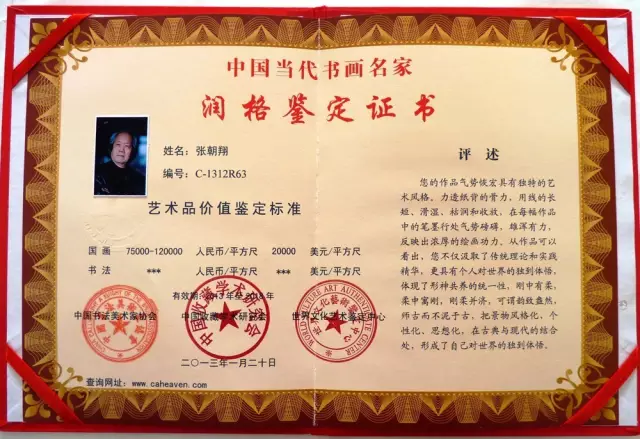 中国当代书画名家
润格鉴定证书
姓名：张朝翔
编号：C-1312R63
艺术品价值鉴定标准
国画 75000-120000 人民币/平方尺 20000 美元/平方尺
书法 *** 人民币/平方尺 *** 美元/平方尺
有效期：2013年至2016年
中国书法美术家协会 中国收藏学术研究会 世界文化艺术鉴定中心
二〇一三年一月二十日
查询网址：www.caheaven.com
评述
您的作品气势恢宏具有独特的艺
术风格。力透纸背的骨力，用线的长
短、滑湿、枯润和收放，在每幅作品
中的笔墨行处气势磅礴，雄浑有力，
反映出浓厚的绘画功力。从作品可以
看出，您不仅汲取了传统理论和实践
精华，更具有个人对世界的独到体悟，
体现了形神共养的统一性，刚中有柔，
柔中寓刚，刚柔并济，可谓
师古而不泥于古。把景物风格化、个
性化、思想化，在古典与现代的结合
处，形成了自己对世界的独到体悟。